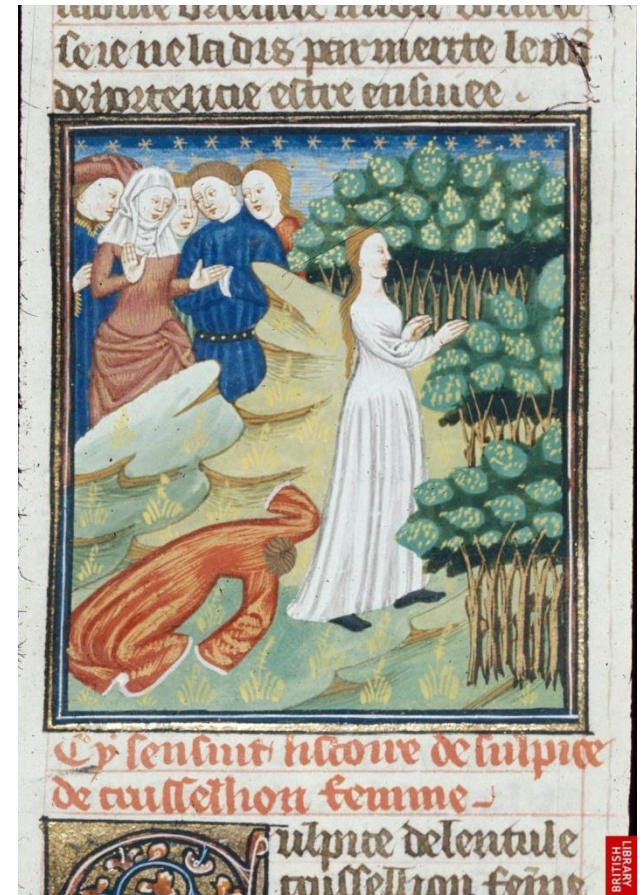 par merite
de hortencie estre ensuiuee .
Cy sensuit listoire de sulpice
de truissellion femme
Sulpice de lentule
truissellion feme
BRITISH
LIBRARY